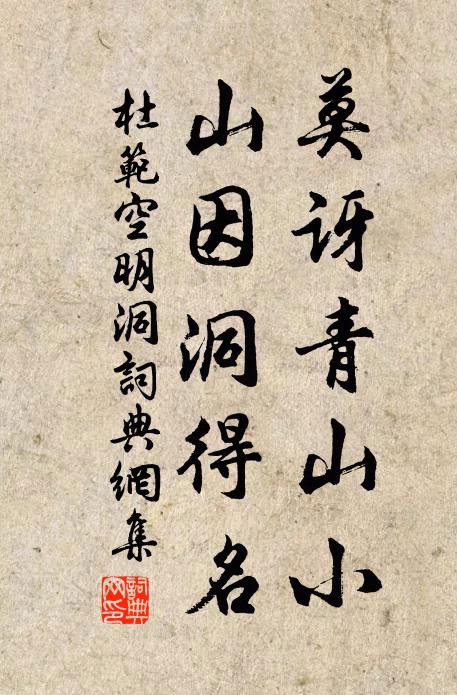 莫訝青山小
山因洞得名
杜範空明洞詞典網集
詞典
网印